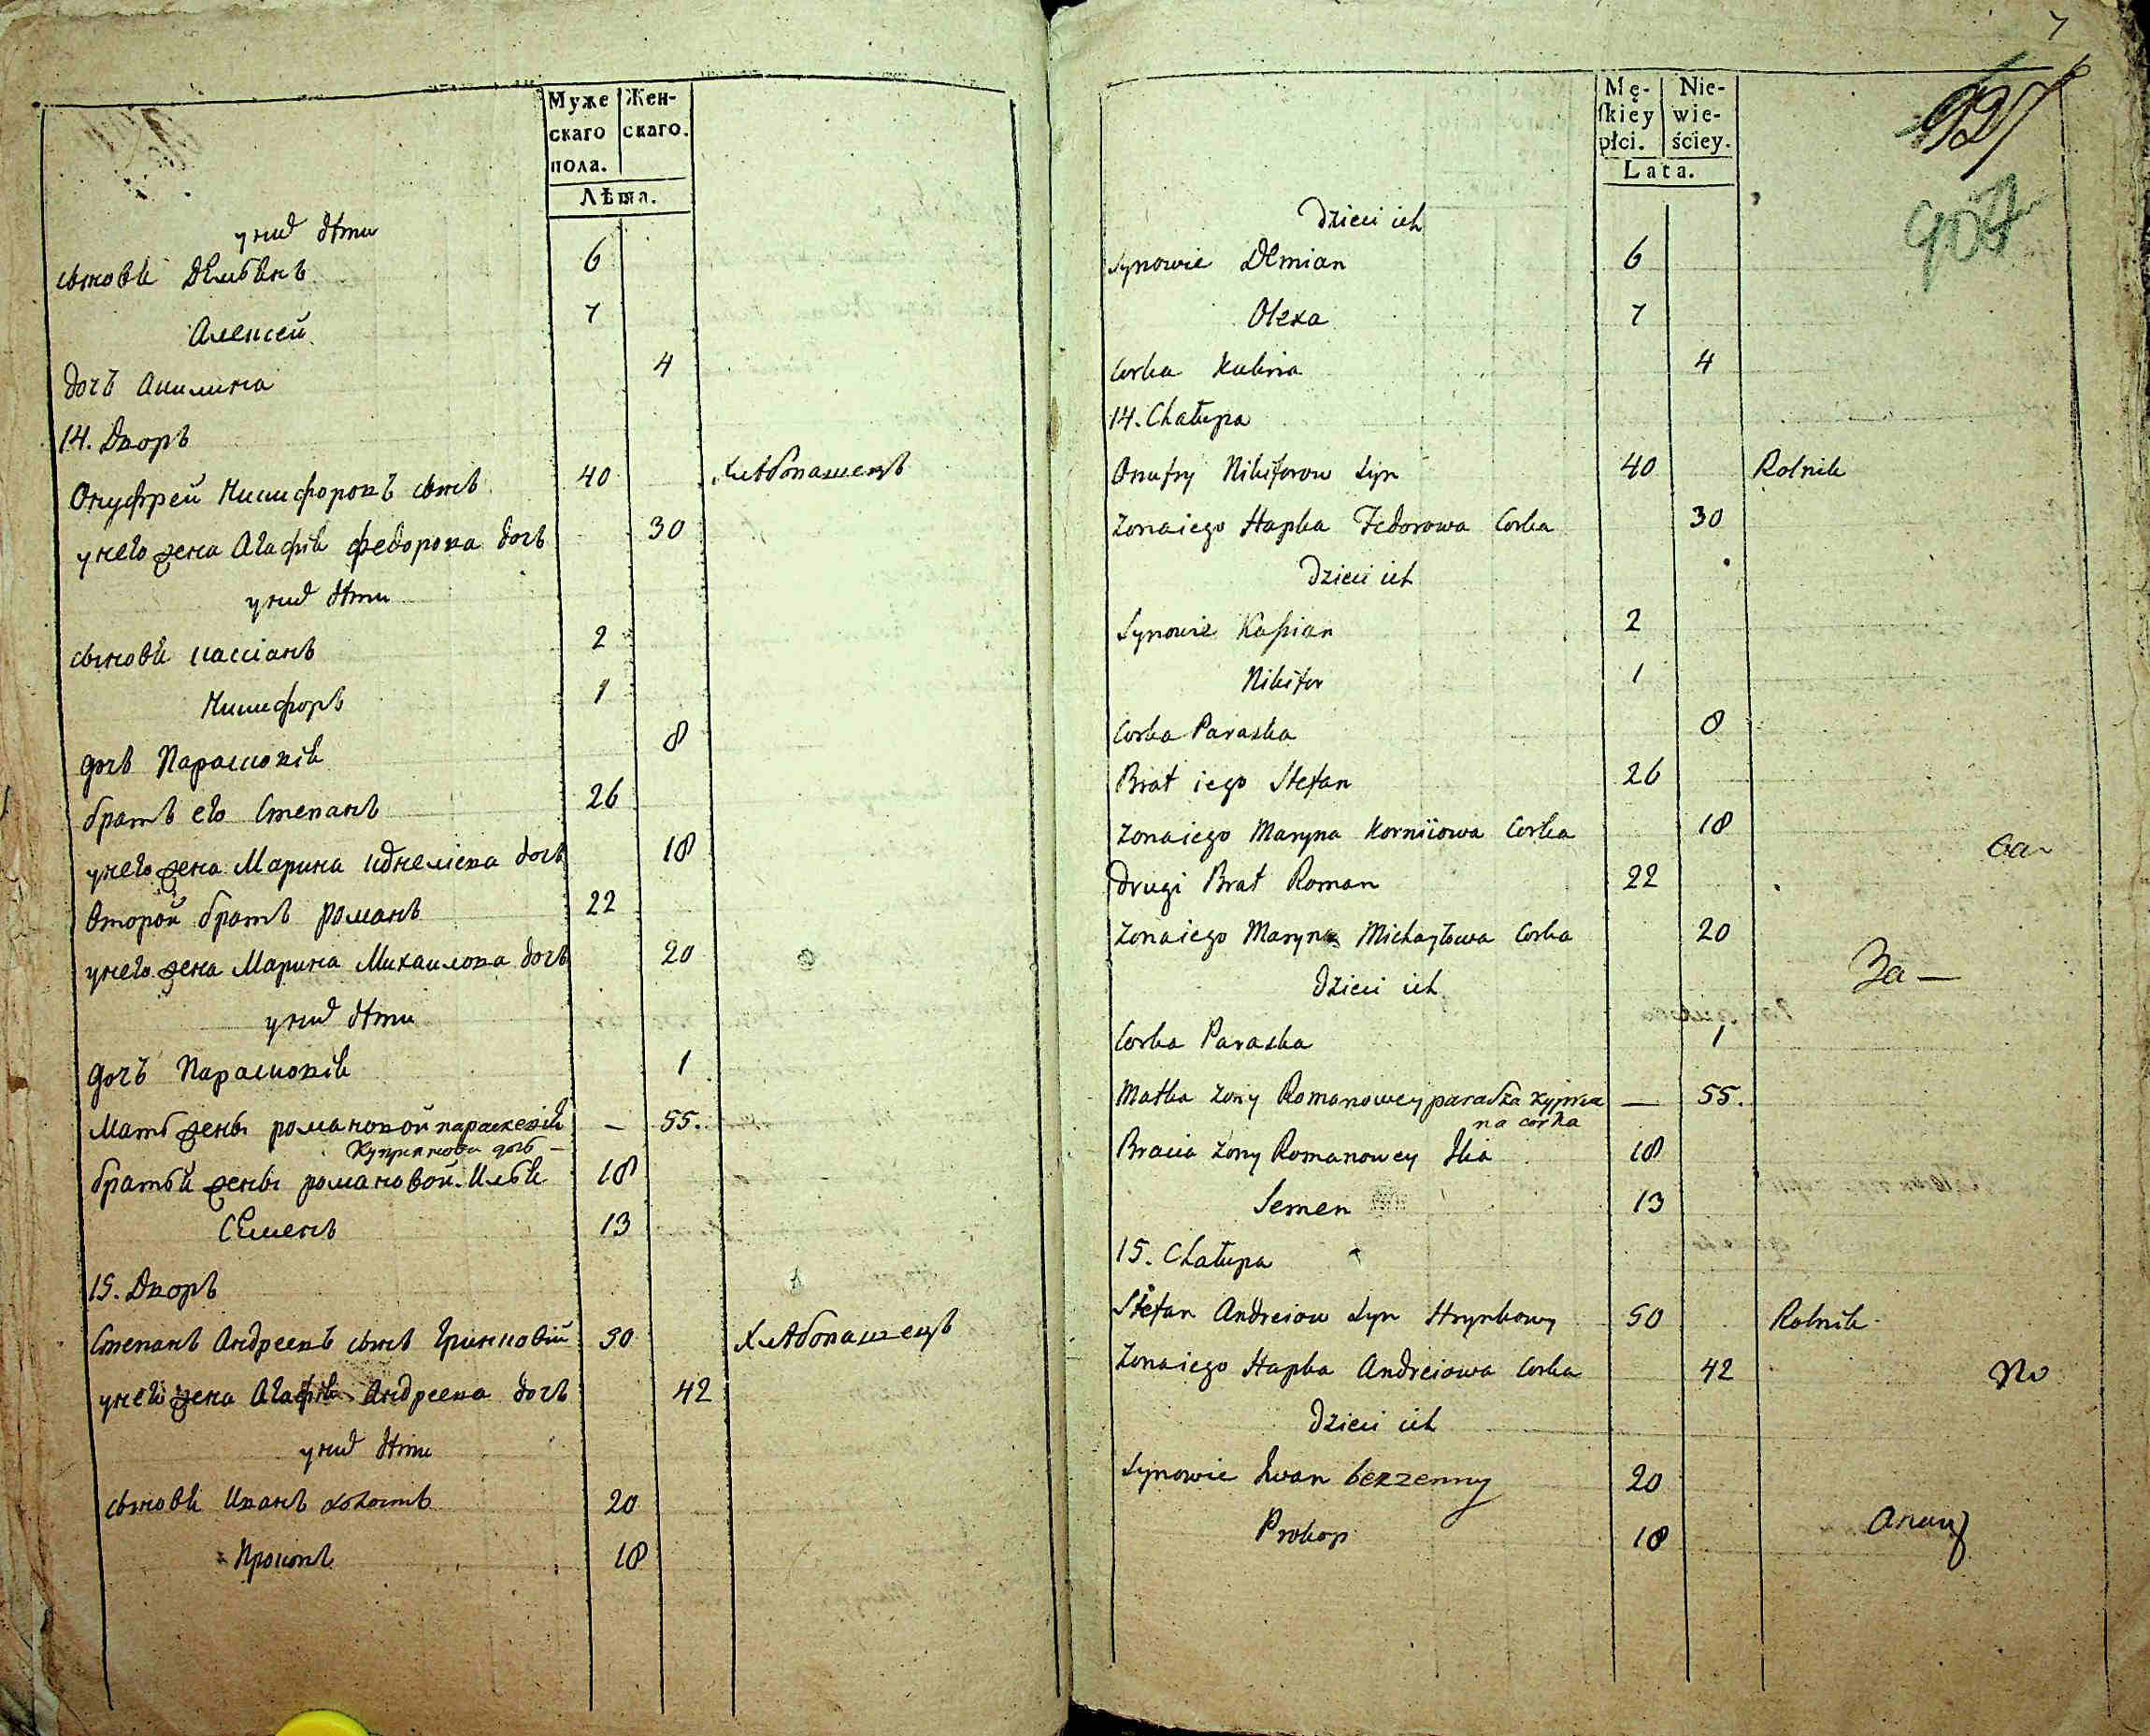 Муже Жен-
скаго скаго.
пола.
Лѣта.
у нихъ дѣти
сыновья Демьянъ 6
Алексей 7
дочь Акилина 4
14. Дворъ
Онуфрей Никифоровъ сынъ 40 Хлѣбопашецъ
у него жена Агафія Федорова дочь 30
у нихъ дѣти
сыновья Кассіанъ 2
Никифоръ 1
дочь Парасковія 8
братъ его Степанъ 26
у него жена Марина Корнеліева дочь 18
второй братъ Романъ 22
у него жена Марина Михаилова дочь 20
у нихъ дѣти
дочь Парасковія 1
Мать жены романовой параскевія — 55.
Куприянова дочь —
братья жены романовой Илья 18
Семенъ 13
15. Дворъ
Степанъ Андреевъ сынъ Гринковій 50 Хлѣбопашецъ
у него жена Агафія Андреева дочь 42
у нихъ дѣти
сыновья Иванъ холостъ 20
Прокопъ 18
7
Mę- Nie-
skiey wie-
płci. ściey.
Lata.
927
907
Dzieci ich
Synowie Demian 6
Olexa 7
Corka Kulina 4
14. Chałupa
Onufry Nikiforow Syn 40 Rolnik
Zona iego Hapka Fedorowa Corka 30
Dzieci ich
Synowie Kassian 2
Nikifor 1
Corka Paraska 8
Brat iego Stefan 26
Zona iego Maryna Korniiowa Corka 18
drugi Brat Roman 22
Zona iego Maryna Michayłowa Corka 20
Dzieci ich
За —
Corka Paraska 1
Matka Zony Romanowey paraska kypria — 55.
na corka
Bracia Zony Romanowey Ilia 18
Semen 13
15. Chałupa
Stefan Andreiow Syn Hrynkowy 50 Rolnik
Zona iego Hapka Andreiowa Corka 42
Dzieci ich
Synowie Iwan bezzenny 20
Prokop 18